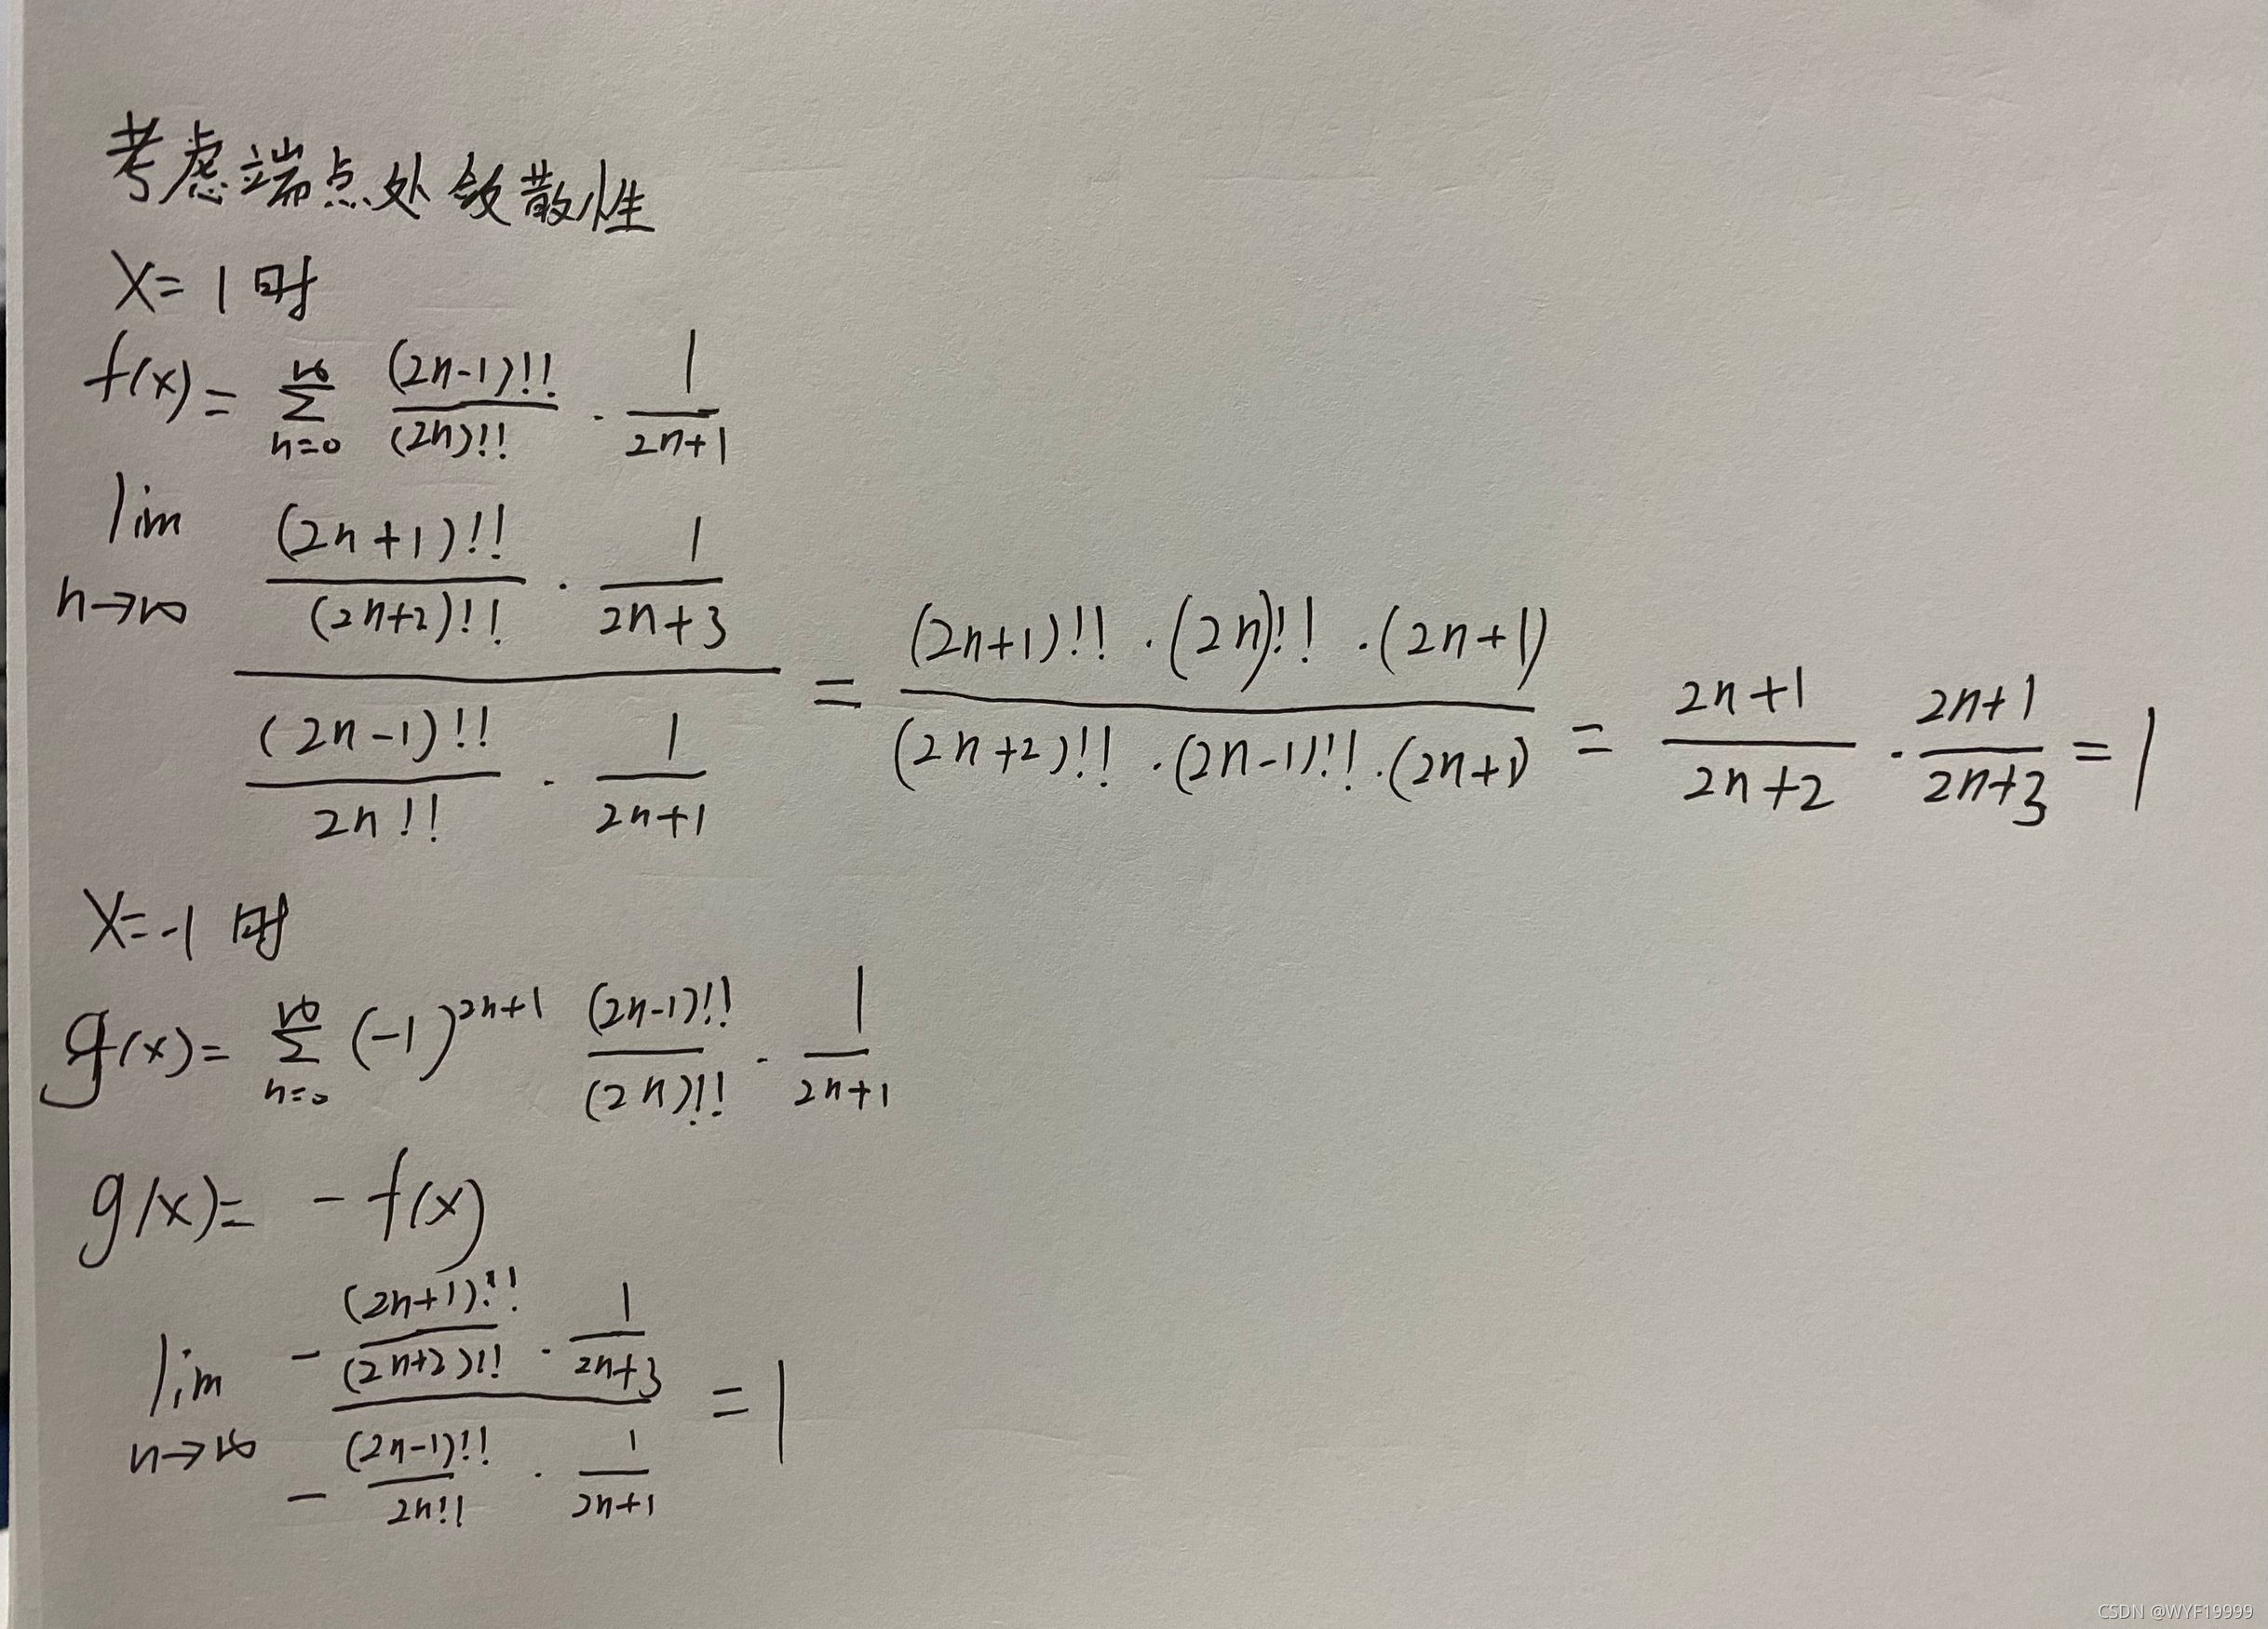 考虑端点处敛散性
X=1时
f(x)= \sum_{n=0}^{∞} \frac{(2n-1)!!}{(2n)!!} · \frac{1}{2n+1}
\lim_{n→∞} \frac{\frac{(2n+1)!!}{(2n+2)!!} · \frac{1}{2n+3}}{\frac{(2n-1)!!}{2n!!} · \frac{1}{2n+1}} = \frac{(2n+1)!! · (2n)!! · (2n+1)}{(2n+2)!! · (2n-1)!! · (2n+1)} = \frac{2n+1}{2n+2} · \frac{2n+1}{2n+3} = 1
X=-1时
g(x)= \sum_{n=0}^{∞} (-1)^{2n+1} \frac{(2n-1)!!}{(2n)!!} · \frac{1}{2n+1}
g(x)= -f(x)
\lim_{n→∞} \frac{-\frac{(2n+1)!!}{(2n+2)!!} · \frac{1}{2n+3}}{-\frac{(2n-1)!!}{2n!!} · \frac{1}{2n+1}} = 1
CSDN @WYF19999